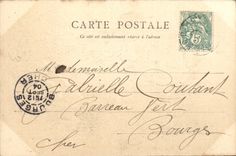 CARTE POSTALE
Ce côté est exclusivement réservé à l'adresse
Mademoiselle
Gabrielle Couhant
Barreau Vert
Bourges
Cher
BOURGES
CHER